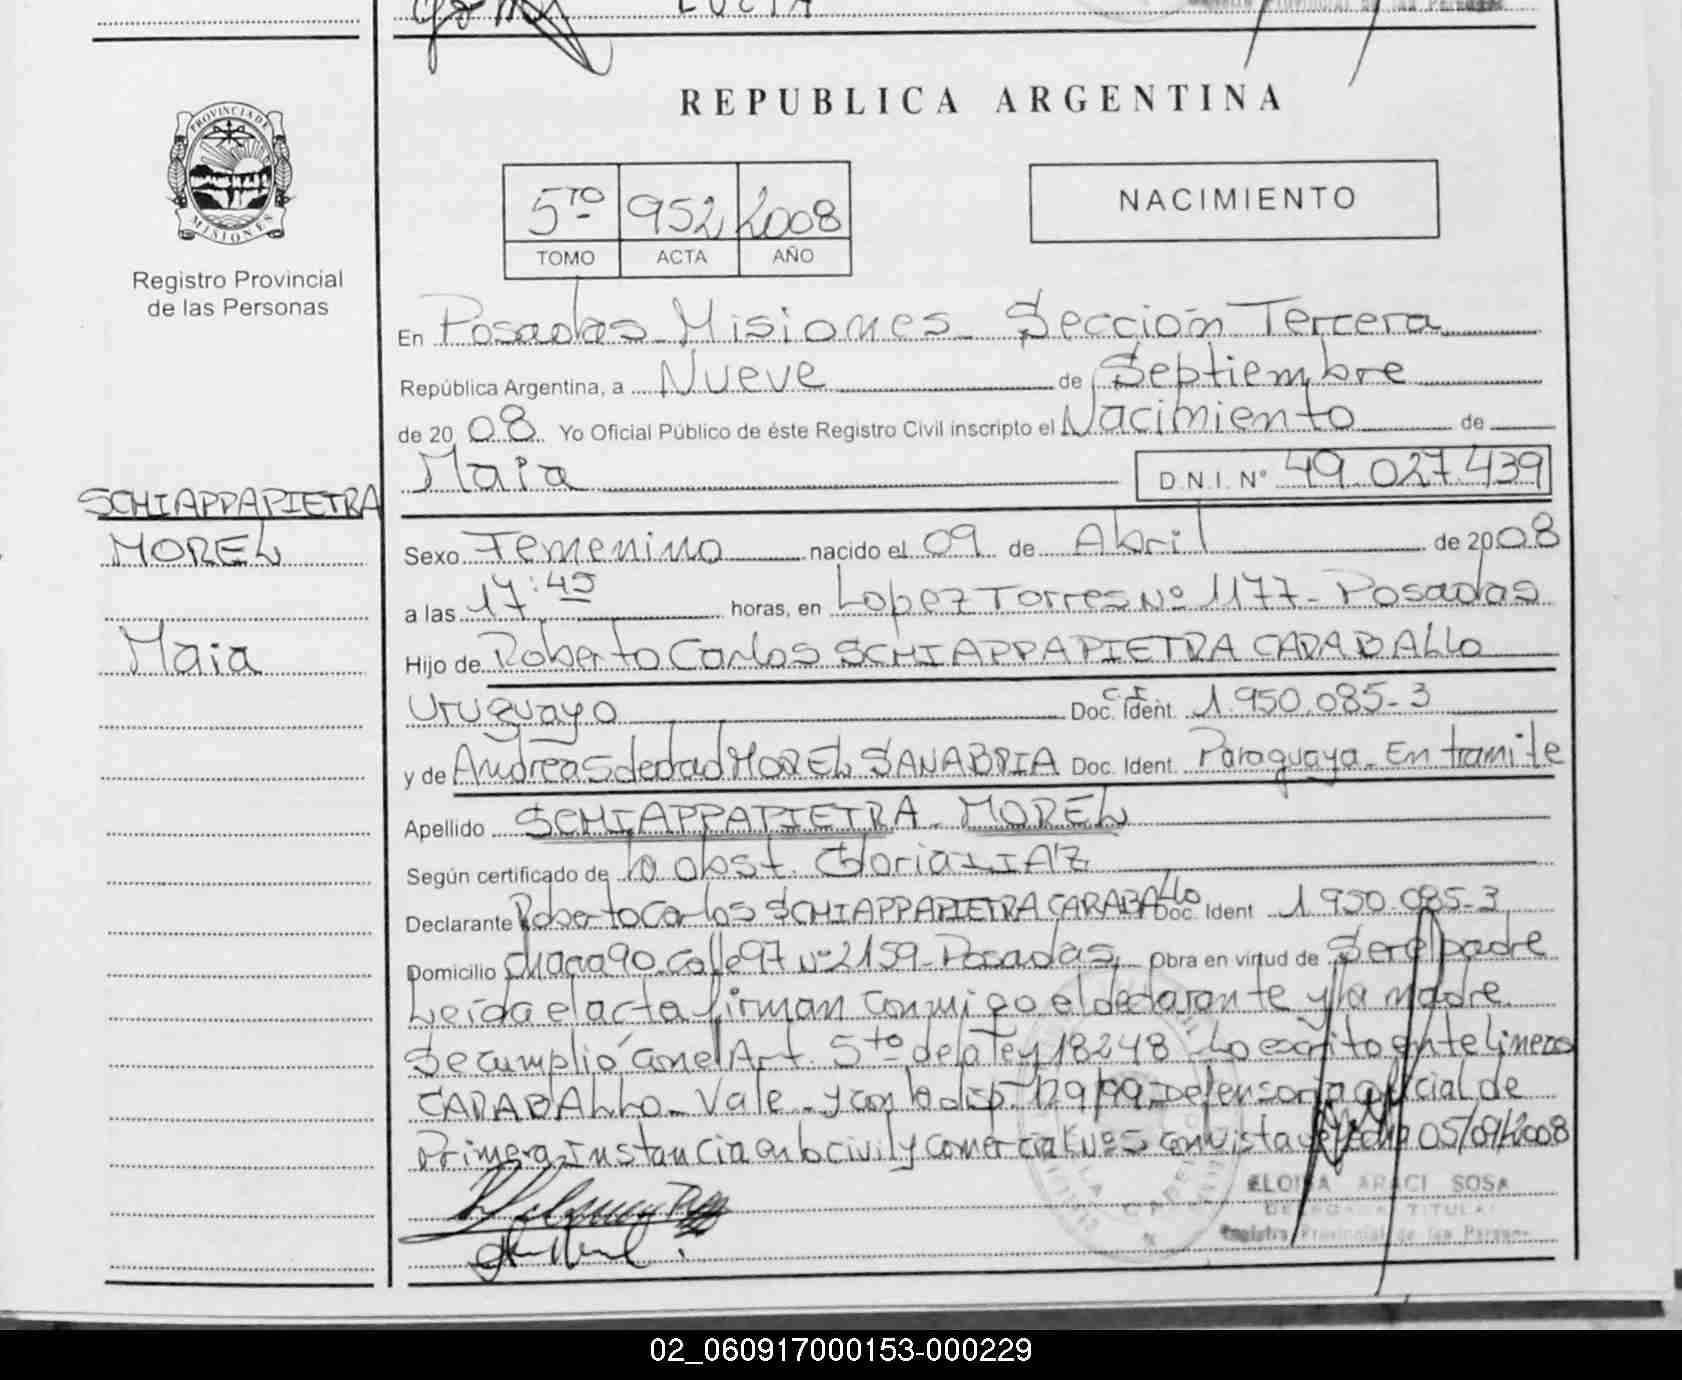 LUCIA
REPUBLICA ARGENTINA
PROVINCIA DE
MISIONES
Registro Provincial
de las Personas
5TO 952 2008
TOMO ACTA AÑO
NACIMIENTO
En Posadas Misiones - Sección Tercera
República Argentina, a Nueve de Septiembre
de 2008 Yo Oficial Público de éste Registro Civil inscripto el Nacimiento de
Maia D.N.I. Nº 49.027.439
SCHIAPPAPIETRA
MOREL
Maia
Sexo Femenino nacido el 09 de Abril de 2008
a las 17:45 horas, en Lopez Torres Nº 1177 - Posadas
Hijo de Roberto Carlos SCHIAPPAPIETRA CARABALLO
Uruguayo Doc. Ident. C.I. 1.950.085-3
y de Andrea Soledad MOREL SANABRIA Doc. Ident. Paraguaya - En tramite
Apellido SCHIAPPAPIETRA - MOREL
Según certificado de la obst. Gloria DIAZ
Declarante Roberto Carlos SCHIAPPAPIETRA CARABALLO Doc. Ident 1.950.085-3
Domicilio chaca 90 - calle 97 nº 2159 - Posadas, Obra en virtud de Ser el padre
Leída el acta firman conmigo el declarante y la madre.
Se cumplió con el Art. 5to de la Ley 18248 - Lo escrito entre lineas
CARABALLO - Vale - y con la disp. 129/99 - Defensoria oficial de
Primera Instancia en lo civil y comercial Nº5 con vista de fecha 05/09/2008
ELOISA ARACI SOSA
DELEGADA TITULAR
Registro Provincial de las Personas
02_060917000153-000229